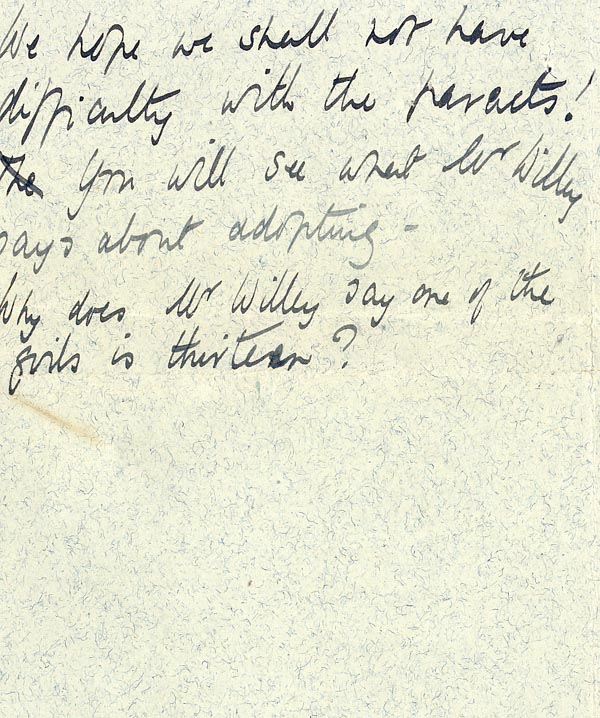 We hope we shall not have
difficulty with the parents!
The You will see what Mr Willey
says about adopting -
Why does Mr Willey say one of the
girls is thirteen?